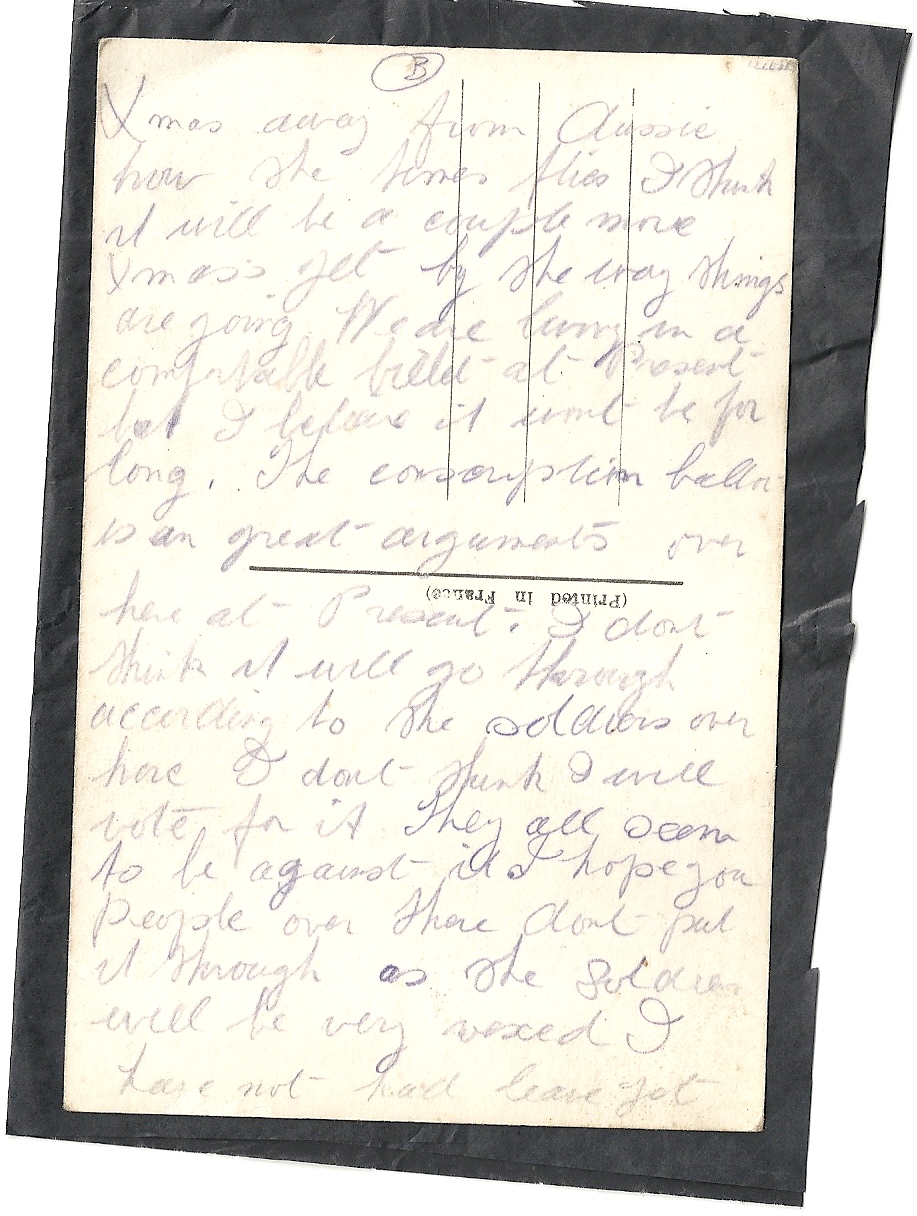 B
Xmas away from Aussie
how the times flies I think
it will be a couple more
Xmass yet by the way things
are going. We are living in a
comfortable billet at Present
but I believe it wont be for
long. The conscription ballot
is an great arguments over
(Printed in France)
here at Present. I dont
think it will go through
according to the soldiers over
here I dont think I will
vote for it They all seem
to be against it I hope you
People over there dont put
it through as the Soldiers
will be very vexed I
have not had leave yet